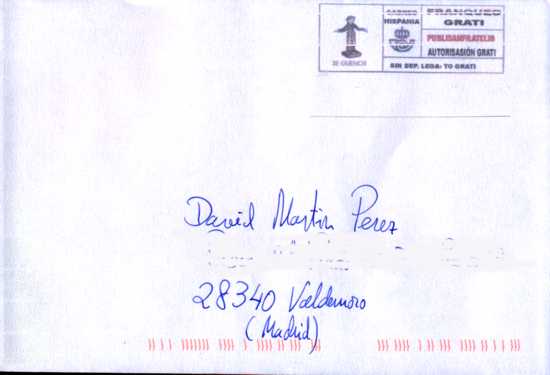 CORREO
HISPANIA
FRANQUEO
GRATI
PUBLISANFILATELIO
AUTORISASIÓN GRATI
SIN DEP. LEGA- TO GRATI
David Martin Perez
28340 Valdemoro
(Madrid)